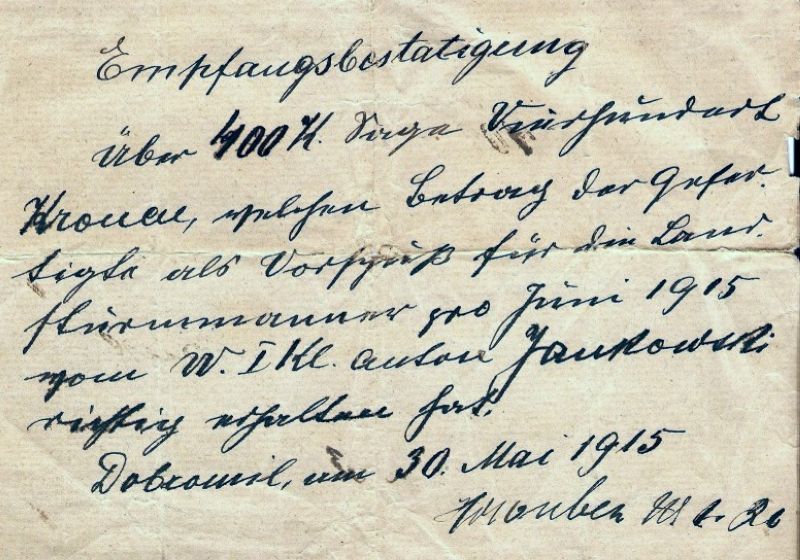 Empfangsbestatigung
Über 400 K. Sage Vierhundert
Kronen, welchen Betrag der Gefer-
tigte als Vorschuß für die Land-
sturmmanner pro Juni 1915
vom W. I Kl. Anton Jankowski
richtig erhalten hat.
Dobromil, am 30. Mai 1915